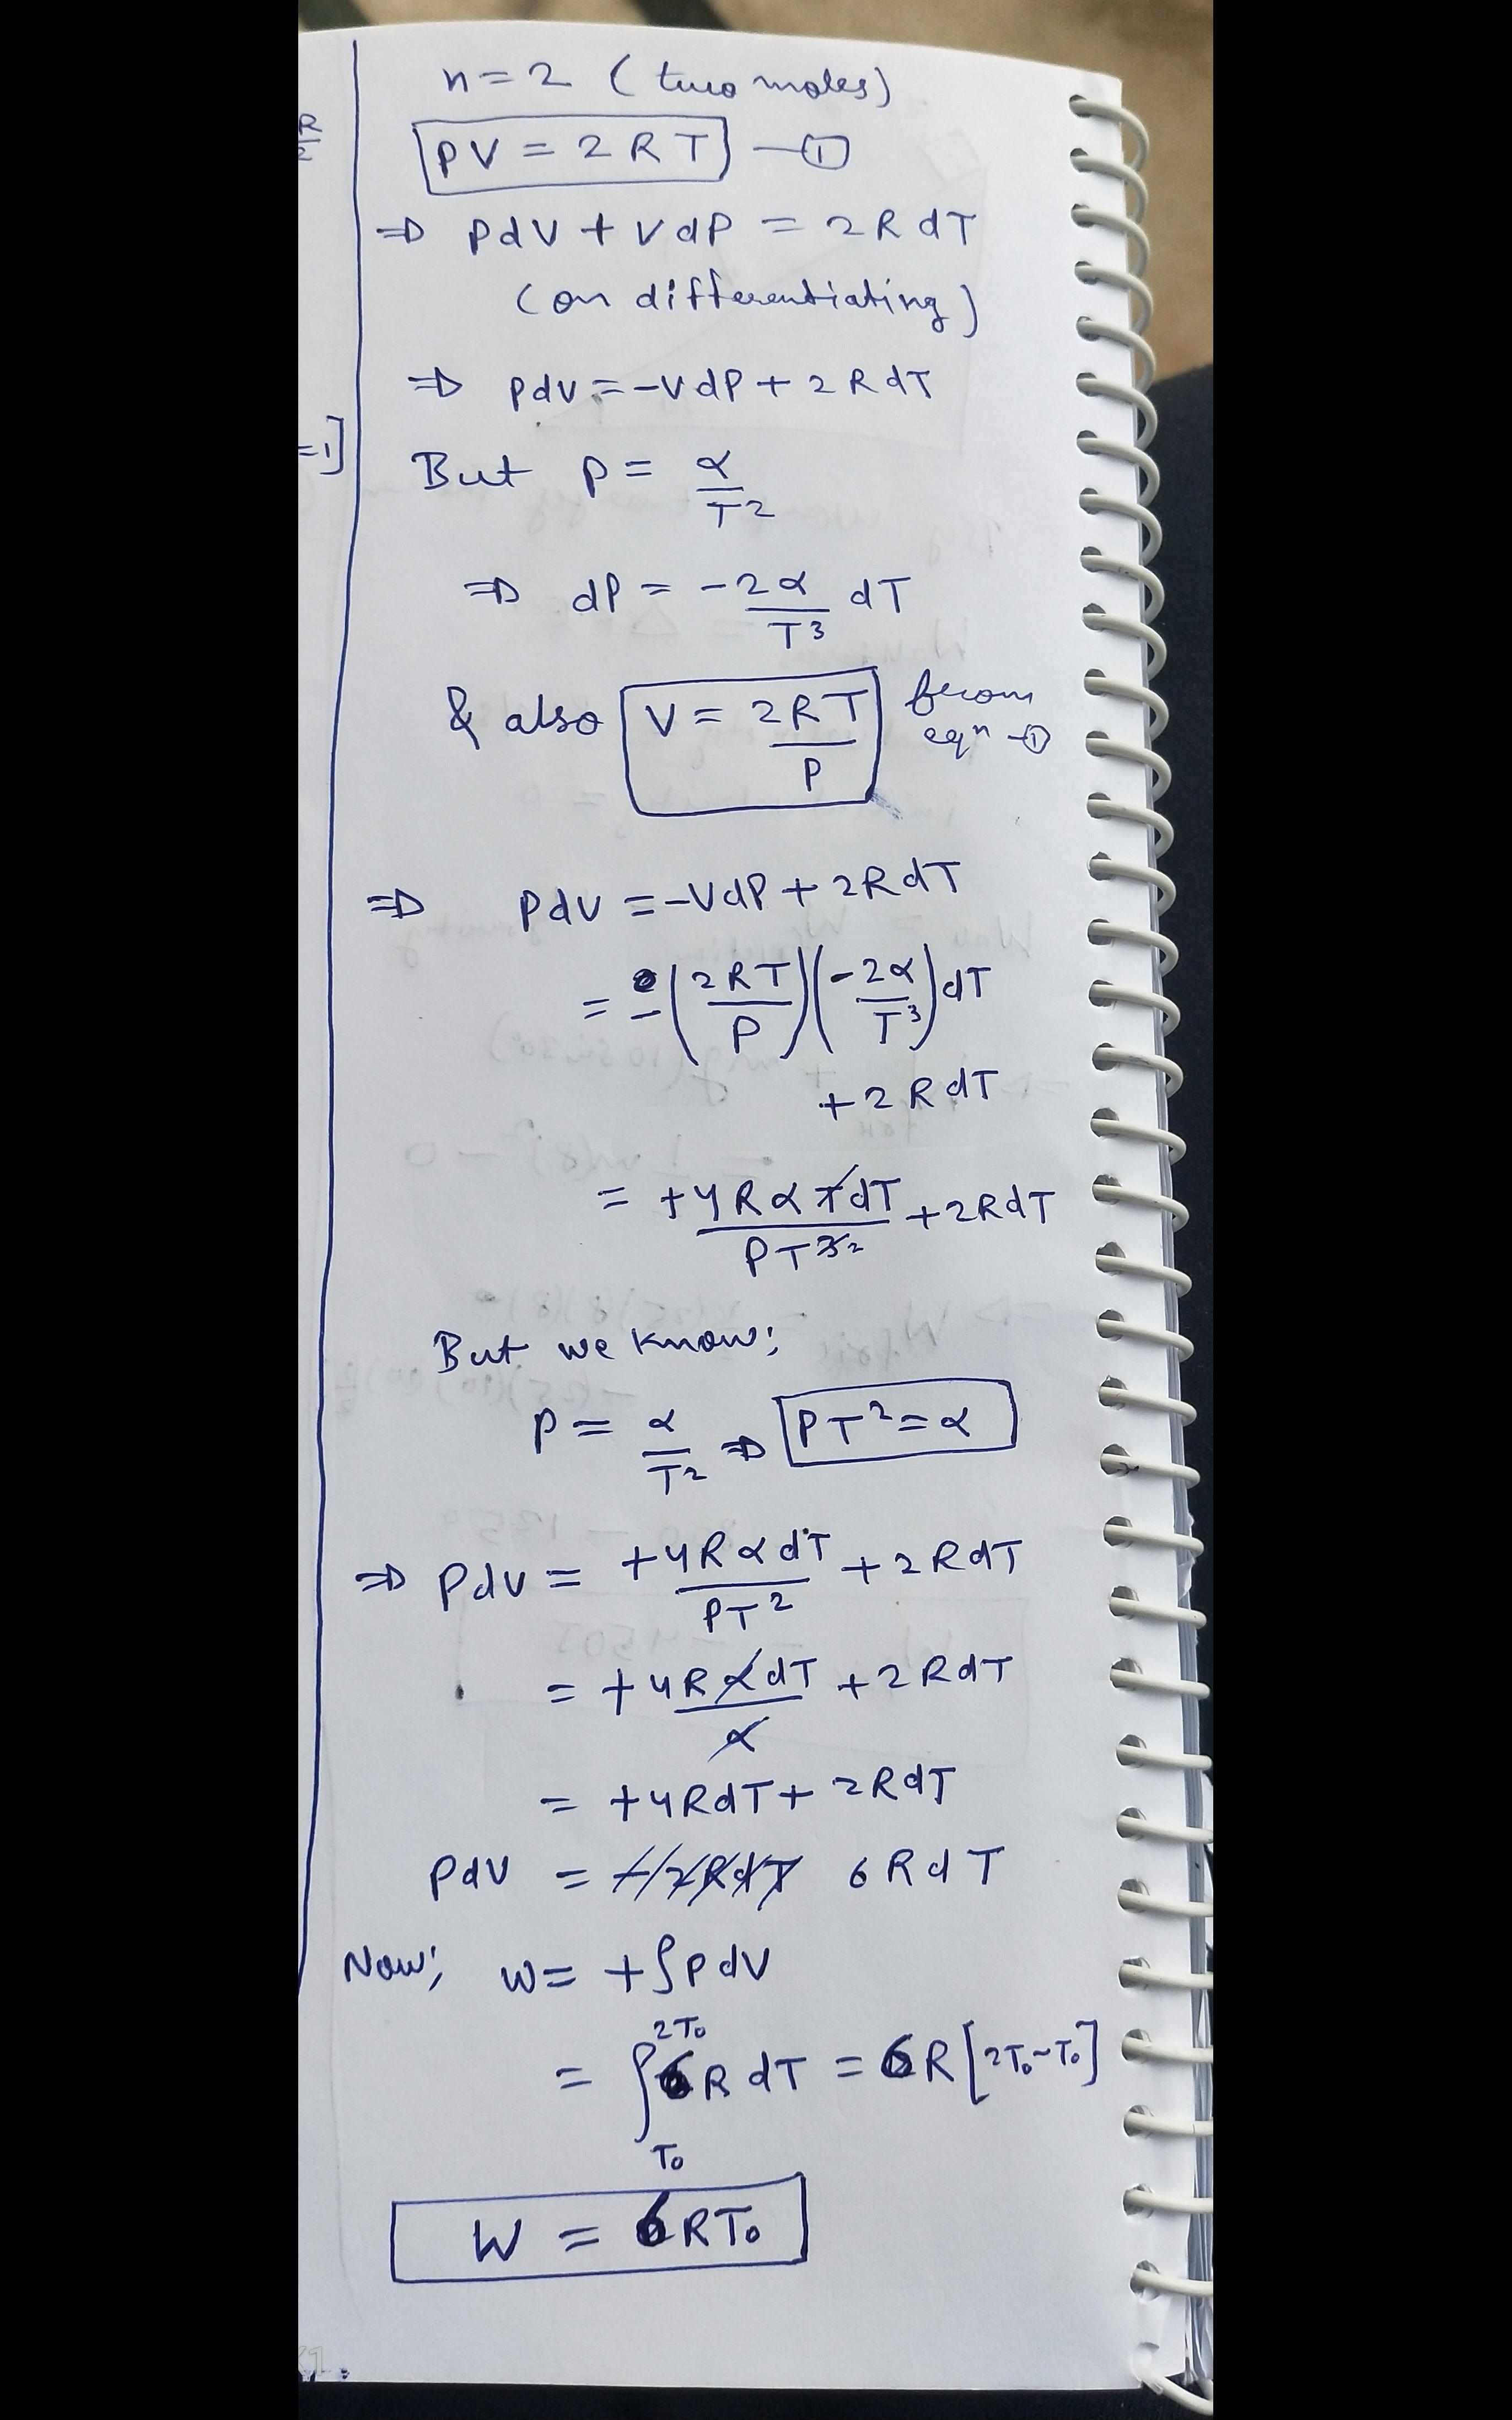 n = 2 (two moles)
R/2
PV = 2RT — ①
⇒ PdV + VdP = 2RdT
(on differentiating)
⇒ PdV = -VdP + 2RdT
=1]
But P = α/T²
⇒ dP = -2α/T³ dT
& also V = 2RT/P from eqⁿ -①
⇒ PdV = -VdP + 2RdT
= -(2RT/P)(-2α/T³)dT
+ 2RdT
= +4RαTdT/PT³² + 2RdT
But we know;
P = α/T² ⇒ PT² = α
⇒ PdV = +4RαdT/PT² + 2RdT
= +4RαdT/α + 2RdT
= +4RdT + 2RdT
PdV = 6RdT
Now; W = +∫PdV
= ∫_{T₀}^{2T₀} 6RdT = 6R[2T₀-T₀]
W = 6RT₀